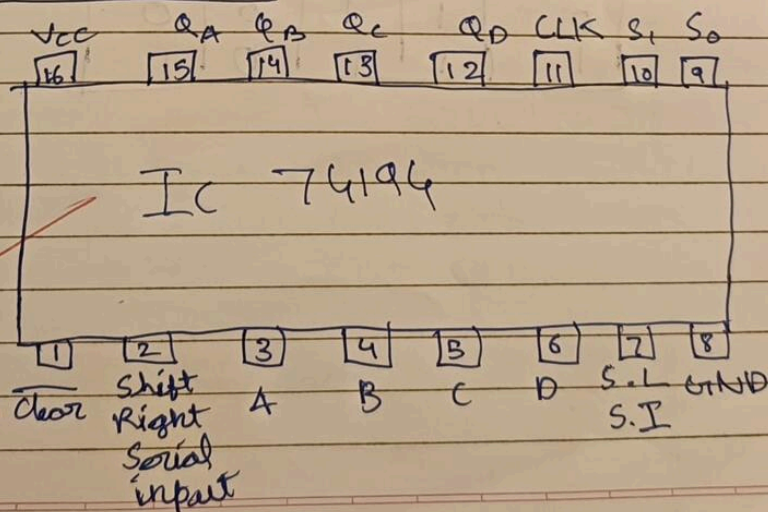 VCC QA QB QC QD CLK S1 S0
16 15 14 13 12 11 10 9
IC 74194
1 2 3 4 5 6 7 8
Clear Shift Right Serial inpaut A B C D S.L S.I GND